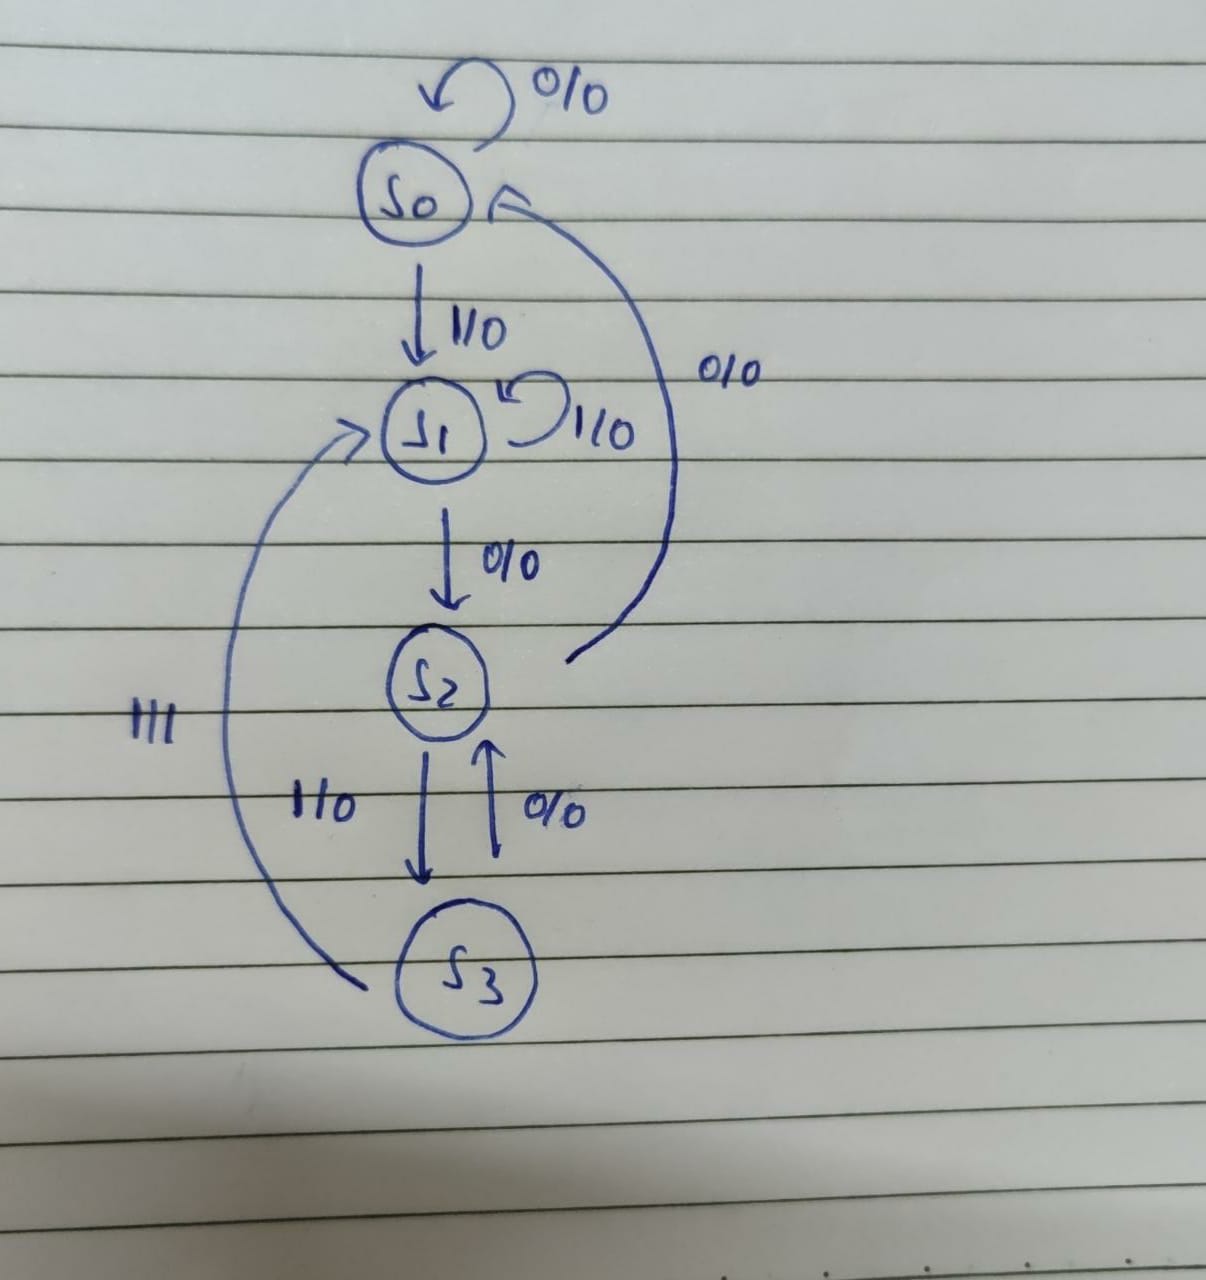 0/0
S0
1/0
0/0
S1
1/0
0/0
S2
1/1
1/0
0/0
S3